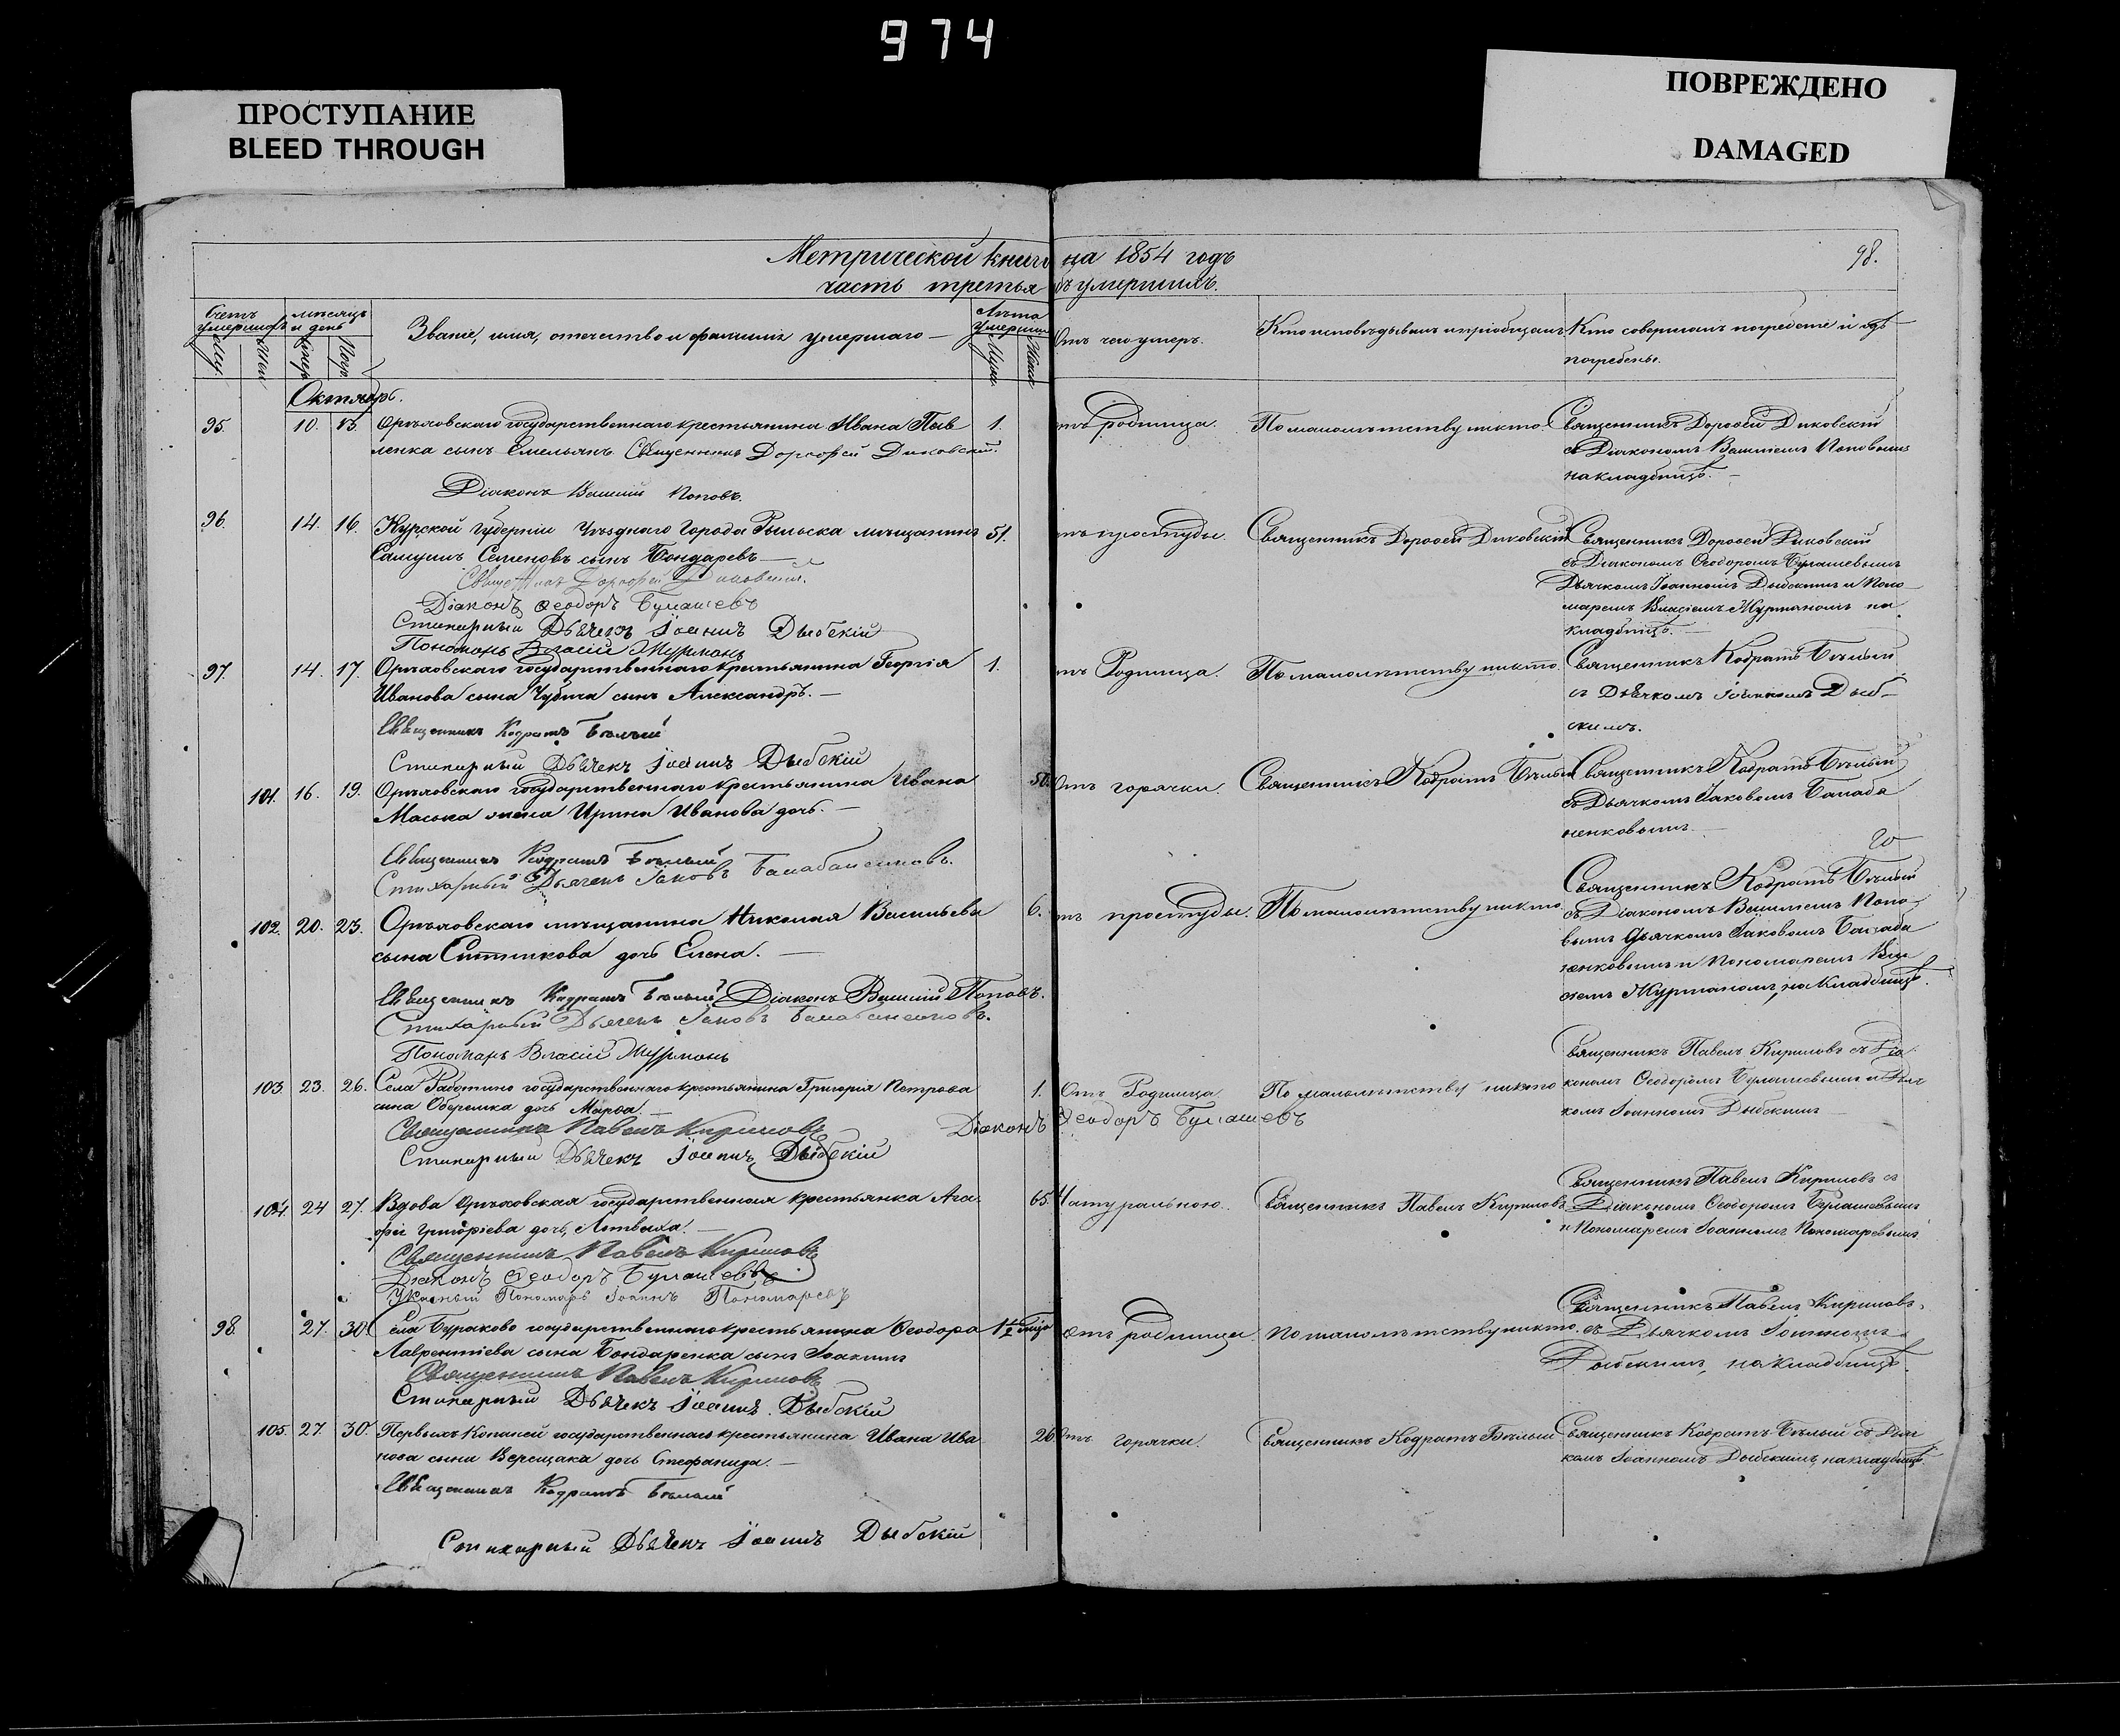 974
ПРОСТУПАНИЕ
BLEED THROUGH
ПОВРЕЖДЕНО
DAMAGED
Метрической книги на 1854 годъ
часть третья объ умершихъ.
98.
Счетъ умершихъ
мѣсяцъ и день
Званіе, имя, отчество и фамилія умершаго
Лѣта умерш
Отъ чего умеръ.
Кто исповѣдывалъ и пріобщалъ.
Кто совершалъ погребеніе и гдѣ
погребены.
Октябрь.
95. 10. Орѣховскаго государственнаго крестьянина Ивана Пав 1. отъ родимца. По малолѣтству никто. Священникъ Дорофей Диковскій
ленка сынъ Емельянъ. Священникъ Дорофей Диковскій. съ Діакономъ Василіемъ Поповымъ
на кладбищѣ.
Діаконъ Василій Поповъ.
96. 14. 16. Курской Губерніи Уѣзднаго Города Рыльска мѣщанинъ 51. отъ простуды. Священникъ Дорофей Диковскій Священникъ Дорофей Диковскій
Самуилъ Семеновъ сынъ Бондаревъ съ Діакономъ Ѳеодоромъ Булашевымъ
Священникъ Дорофей Диковскій. Дьячкомъ Іоанномъ Дыбскимъ и Поно
Діаконъ Ѳеодоръ Булашевъ маремъ Власіемъ Журманомъ на
Стихарный Дьячекъ Іоаннъ Дыбскій кладбищѣ.
Пономарь Власій Журманъ
97. 14. 17. Орѣховскаго государственнаго крестьянина Георгія 1. отъ Родимца. По малолѣтству никто. Священникъ Кодратъ Бѣлый
Иванова сына Чубича сынъ Александръ. съ Дьячкомъ Іоанномъ Дыб-
скимъ.
Священникъ Кодратъ Бѣлый
Стихарный Дьячекъ Іоаннъ Дыбскій
101. 16. 19. Орѣховскаго государственнаго крестьянина Ивана Отъ горячки. Священникъ Кодратъ Бѣлый Священникъ Кодратъ Бѣлый
Маська жена Ирина Иванова дочь. съ Дьячкомъ Іаковомъ Балаба
ненковымъ.
Священникъ Кодратъ Бѣлый
Стихарный Дьячекъ Іаковъ Балабаненковъ.
102. 20. 23. Орѣховскаго мѣщанина Николая Васильева 6. отъ простуды. По малолѣтству никто. Священникъ Кодратъ Бѣлый
сына Ситникова дочь Елена. съ Діакономъ Василіемъ Попо-
вымъ Дьячкомъ Іаковомъ Балаба
ненковымъ и Пономаремъ Вла
сіемъ Журманомъ, на Кладбищѣ.
Священникъ Кодратъ Бѣлый Діаконъ Василій Поповъ.
Стихарный Дьячекъ Іаковъ Балабаненковъ.
Пономарь Власій Журманъ
103. 23. 26. Села Работино государственнаго крестьянина Григорія Петрова 1. Отъ Родимца По малолѣтству никто Священникъ Павелъ Кириловъ съ Діа
сина Оберемка дочь Марфа. кономъ Ѳеодоромъ Булашевымъ и Дьяч
комъ Іоанномъ Дыбскимъ
Священникъ Павелъ Кириловъ Діаконъ Ѳеодоръ Булашевъ
Стихарный Дьячекъ Іоаннъ Дыбскій
104. 24 27. Вдова Орѣховская государственная крестьянка Ага 65. Натуральною. Священникъ Павелъ Кириловъ Священникъ Павелъ Кириловъ съ
фія Григоріева дочь, Литвиха. Діакономъ Ѳеодоромъ Булашевымъ
и Пономаремъ Іоанномъ Пономаревымъ
Священникъ Павелъ Кириловъ
Діаконъ Ѳеодоръ Булашевъ
Указный Пономарь Іоаннъ Пономаревъ
98. 27. 30. Села Бураково государственнаго крестьянина Ѳеодора отъ родимца По малолѣтству никто. Священникъ Павелъ Кириловъ
Лаврентіева сына Бондаренка сынъ Іоакимъ съ Дьячкомъ Іоанномъ
Дыбскимъ, на кладбищѣ.
Священникъ Павелъ Кириловъ
Стихарный Дьячекъ Іоаннъ Дыбскій
105. 27. 30. Первыхъ Копаней государственнаго крестьянина Ивана Ива 26 Отъ горячки. Священникъ Кодратъ Бѣлый Священникъ Кодратъ Бѣлый съ Дьяч
нова сына Верещака дочь Стефанида. комъ Іоанномъ Дыбскимъ на кладбищѣ
Священникъ Кодратъ Бѣлый
Стихарный Дьячекъ Іоаннъ Дыбскій